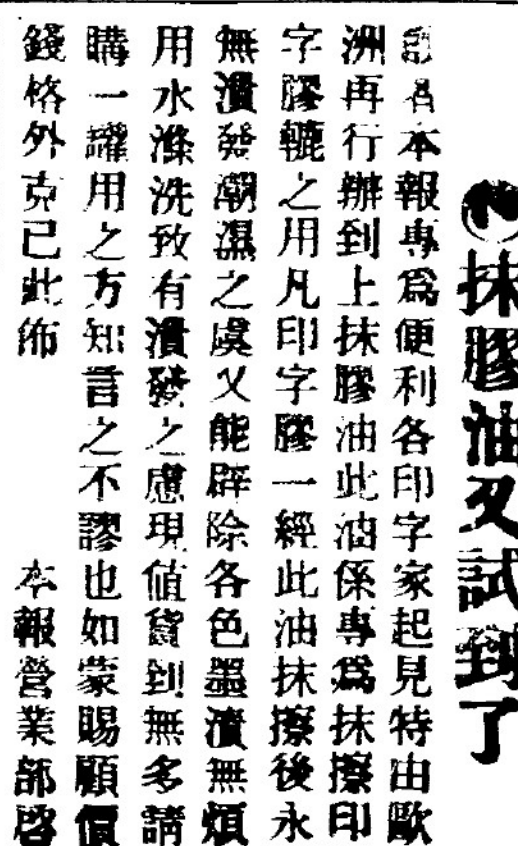 抹膠油又試到了
者本報專爲便利各印字家起見特由歐
洲再行辦到上抹膠油此油係專爲抹擦印
字膠轆之用凡印字膠一經此油抹擦後永
無潰發潮濕之虞又能辟除各色墨漬無煩
用水滌洗致有潰發之慮現値貨到無多請
購一罐用之方知言之不謬也如蒙賜顧價
錢格外克已此佈 本報營業部啓